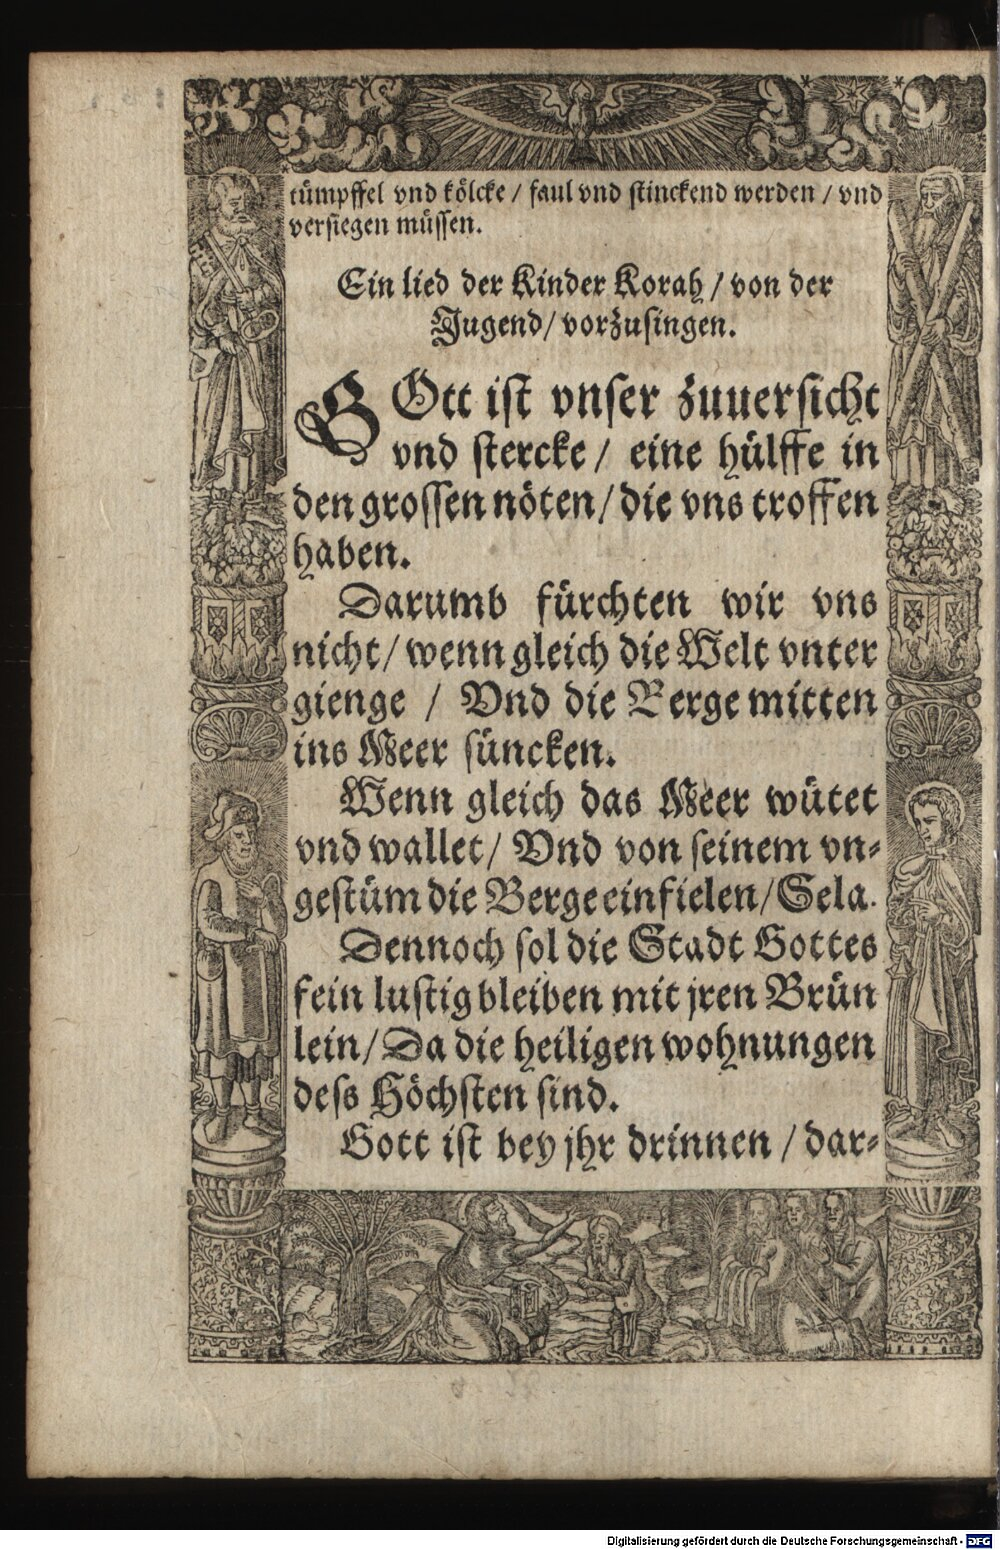 tümpffel vnd kölcke / faul vnd stinckend werden / vnd
versiegen müssen.
Ein lied der Kinder Korah / von der
Jugend / vorzusingen.
GOtt ist vnser zuuersicht
vnd stercke / eine hülffe in
den grossen nöten / die vns troffen
haben.
Darumb fürchten wir vns
nicht / wenn gleich die Welt vnter
gienge / Vnd die Berge mitten
ins Meer süncken.
Wenn gleich das Meer wütet
vnd wallet / Vnd von seinem vn-
gestüm die Berge einfielen / Sela.
Dennoch sol die Stadt Gottes
fein lustig bleiben mit jren Brün
lein / Da die heiligen wohnungen
dess Höchsten sind.
Gott ist bey jhr drinnen / dar-
Digitalisierung gefördert durch die Deutsche Forschungsgemeinschaft - DFG